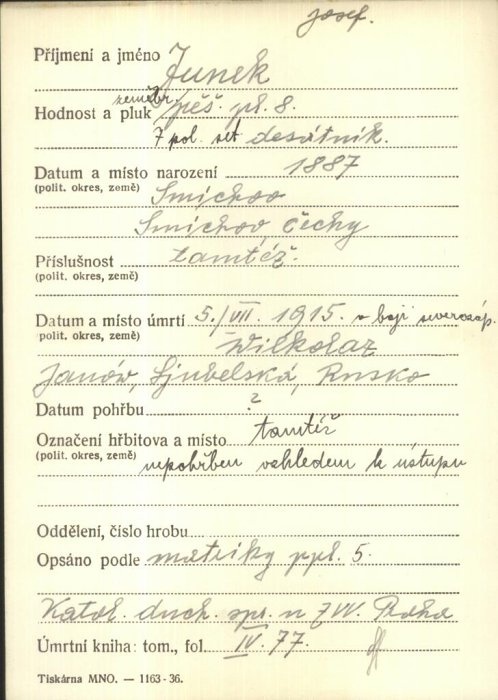 Josef.
Příjmení a jméno Junek
zeměbr.
Hodnost a pluk pěš. pl. 8.
7 pol. set. desátník.
Datum a místo narození 1887
(polit. okres, země) Smíchov
Smíchov Čechy
Příslušnost tamtéž.
(polit. okres, země)
Datum a místo úmrtí 5./VII. 1915. v boji severozáp.
polit. okres, země) Wilkolaz
Janów, Ljubelská, Rusko
Datum pohřbu ?
Označení hřbitova a místo tamtéž
(polit. okres, země) nepohřben vzhledem k ústupu
Oddělení, číslo hrobu
Opsáno podle matriky ppl. 5.
Katol. duch. spr. u ZVV. Praha
Úmrtní kniha: tom., fol. IV. 77.
Tiskárna MNO. — 1163-36.